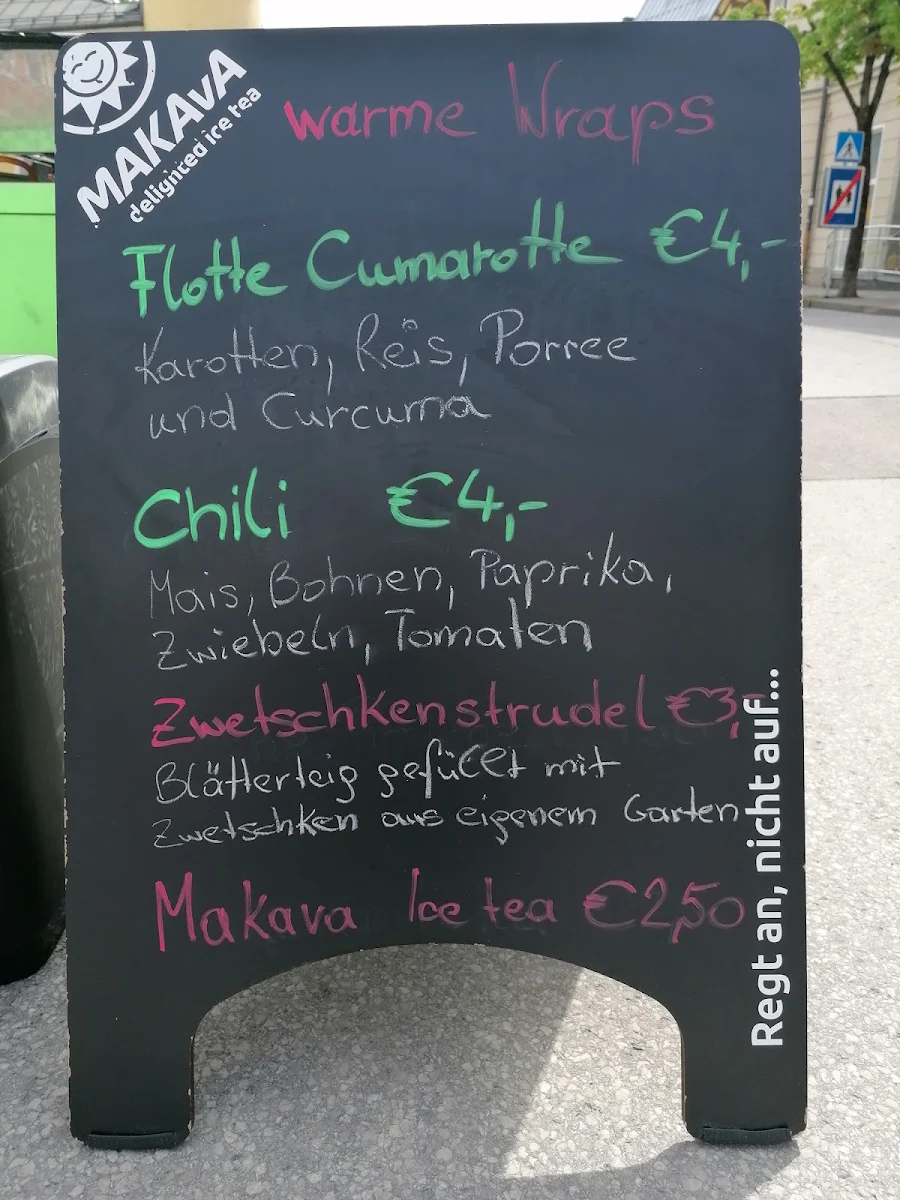 MAKAvA
delighted ice tea
warme Wraps
Flotte Cumarotte €4,-
Karotten, Reis, Porree
und Curcuma
Chili €4,-
Mais, Bohnen, Paprika,
Zwiebeln, Tomaten
Zwetschkenstrudel €3,-
Blätterteig gefüllt mit
Zwetschken aus eigenem Garten
Makava Ice tea €2,50
Regt an, nicht auf...